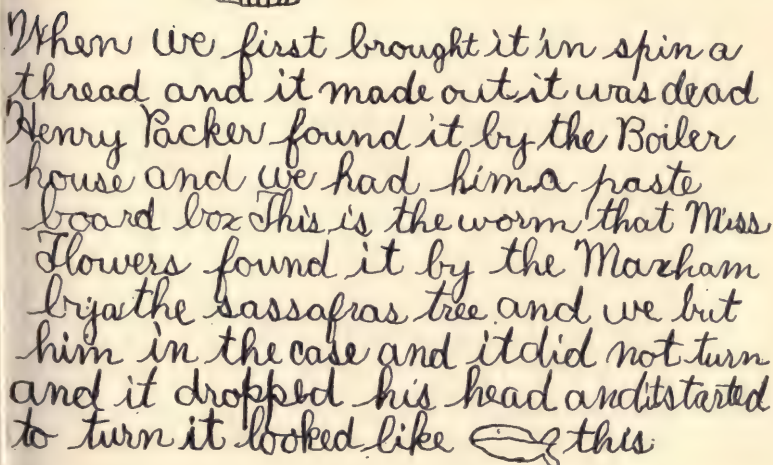 When we first brought it in spin a
thread and it made out it was dead
Henry Packer found it by the Boiler
house and we had him a paste
board box This is the worm that Miss
Flowers found it by the Marham
brja the sassafras tree and we but
him in the case and it did not turn
and it dropped his head and itstarted
to turn it looked like this